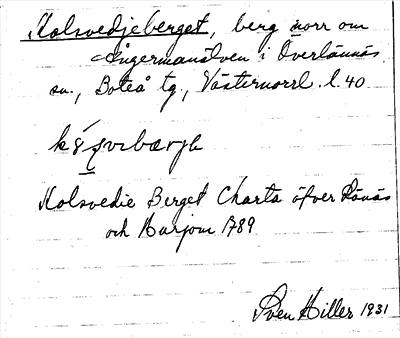 Kolsvedjeberget, berg norr om
Ångermanälven i Överlännäs
sn., Boteå tg., Västernorrl. l. 40
Kolsvedie Berget Charta öfver Rånäs
och Marjom 1789
Sven Hiller 1931